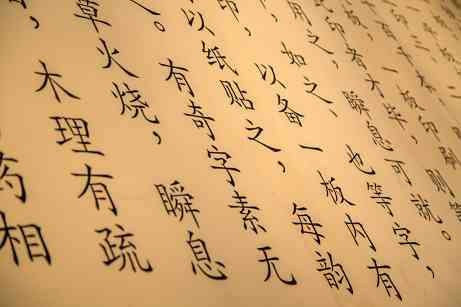 印者才毕，则
用之，瞬息可就。
如之、也等字，
印，以备一板内有
以纸贴之，每韵
有奇字素无
草火烧，瞬息
。木理有疏
药相